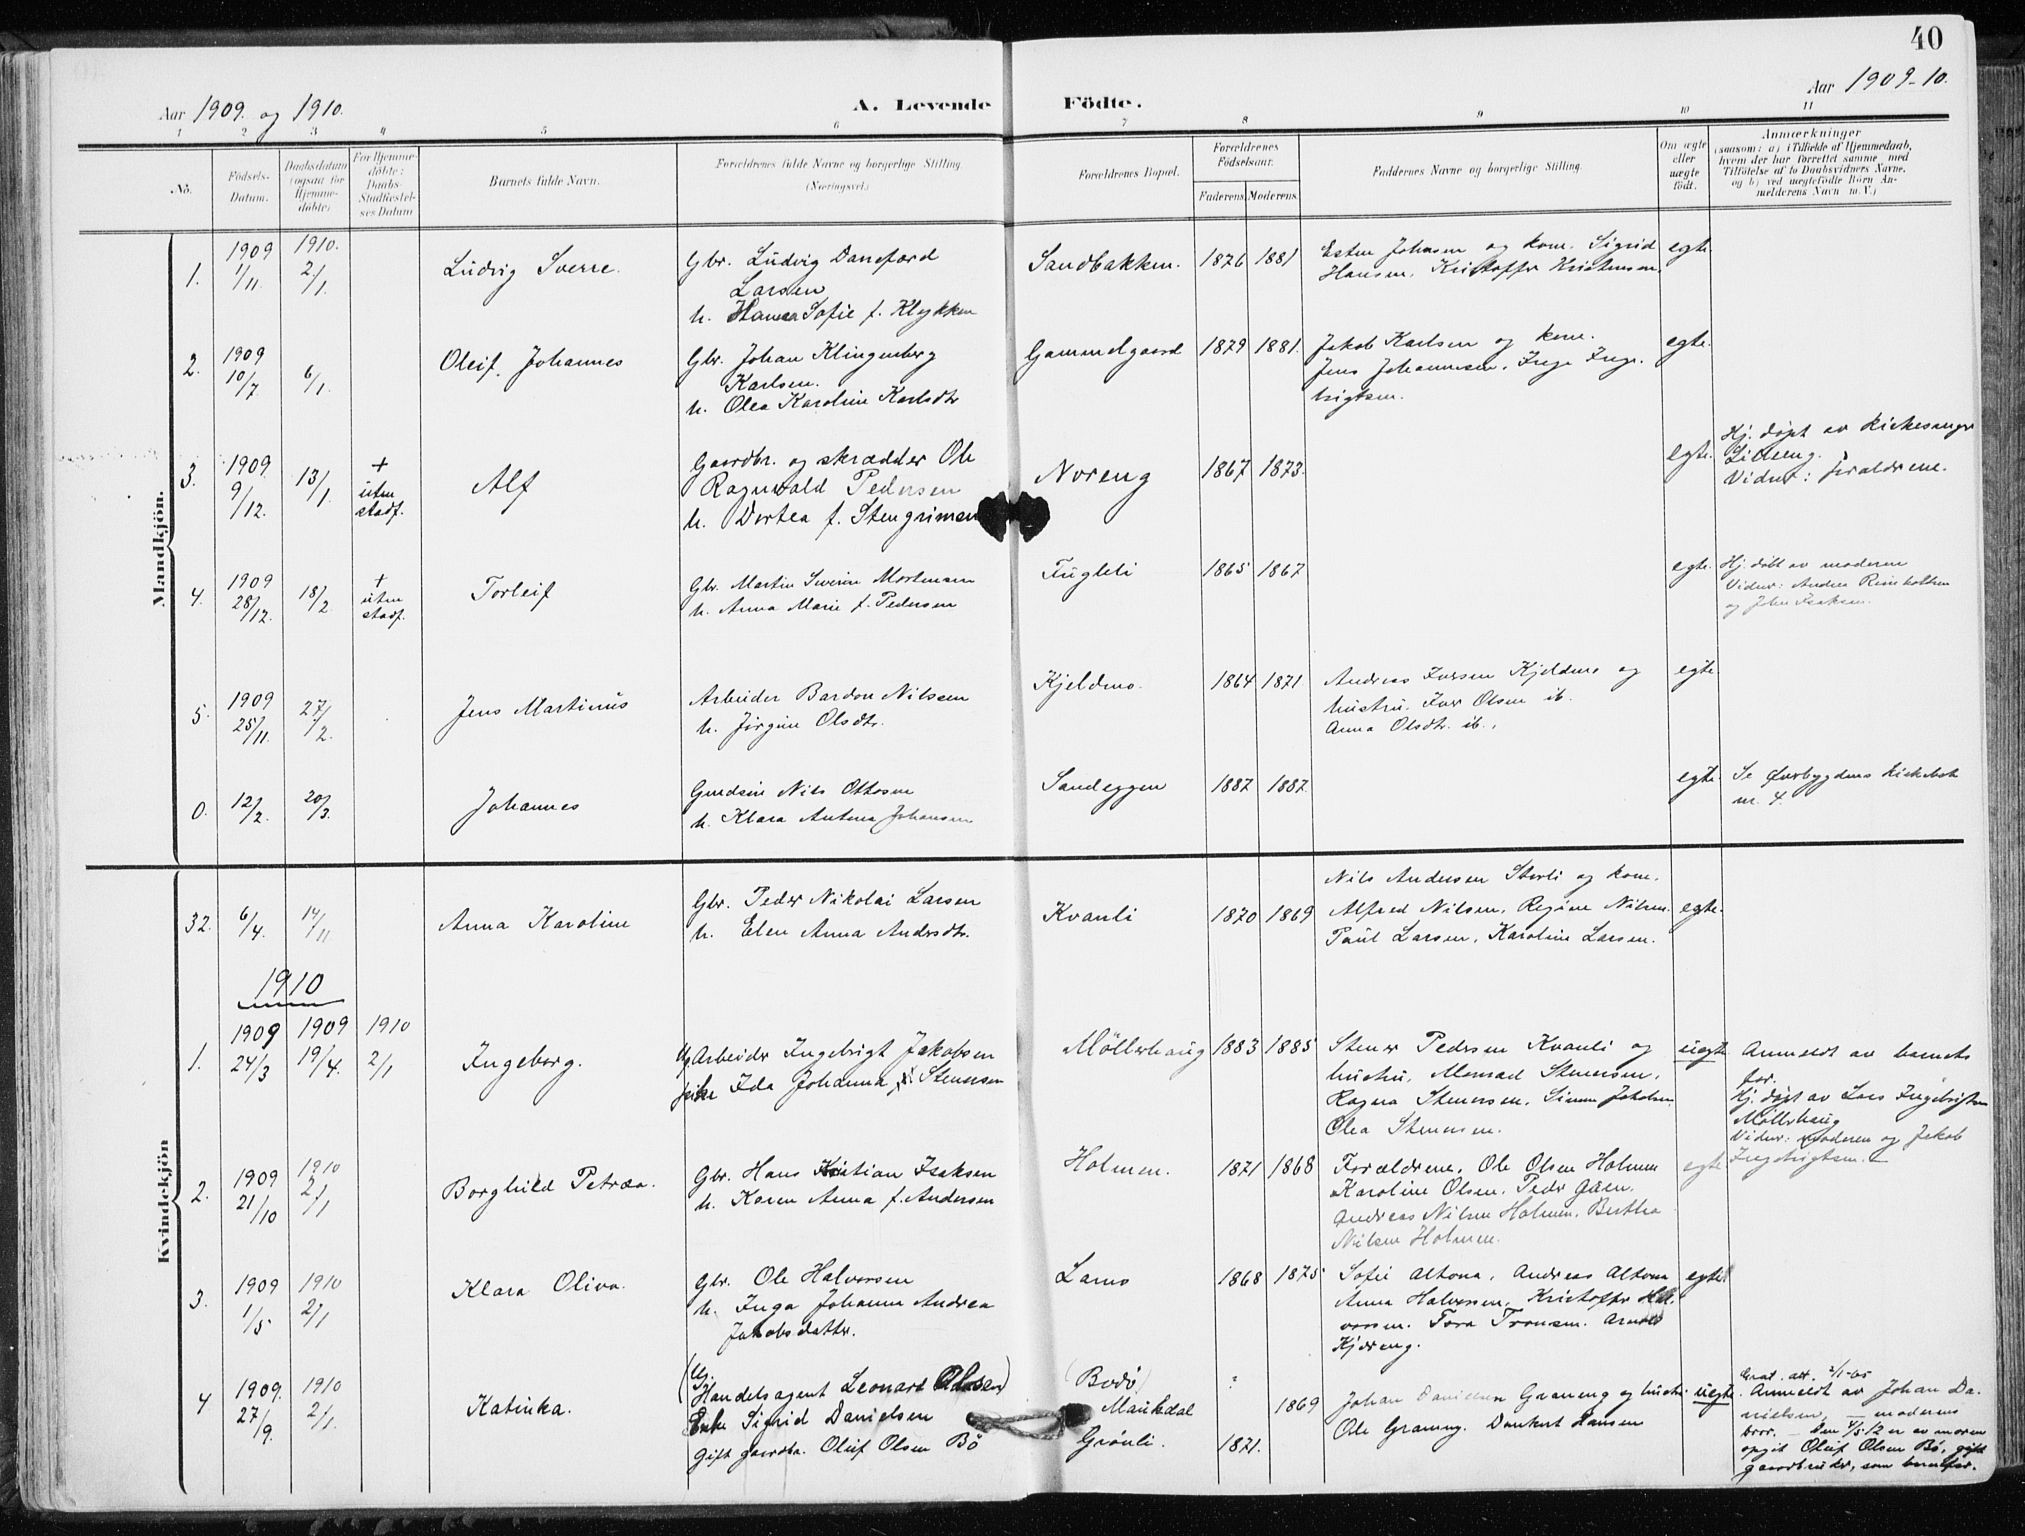 40
Aar 1909 og 1910.
A. Levende Födte.
Aar 1909-10.
1 2 3 4 5 6 7 8 9 10 11
No.
Födsels-Datum.
Daabsdatum (ogsaa for Hjemme-döbte)
For Hjemme-döbte: Daabs-Stadfæstel-ses Datum
Barnets fulde Navn.
Forældrenes fulde Navne og borgerlige Stilling.
(Næringsvei.)
Forældrenes Bopæl.
Forældrenes Födselsaar.
Faderens. Moderens.
Faddernes Navne og borgerlige Stilling.
Om ægte eller uægte födt.
Anmærkninger
(saasom: a) i Tilfælde af Hjemmedaab,
hvem der har forrettet samme, med
Tilföielse af to Daabsvidners Navne,
og b) ved uægtefödte Börn An-
melderens Navn m. V.)
Mandkjön.
1. 1909 1/11. 1910. 2/1. Ludvig Sverre. Gbr. Ludvig Danefærd
Larsen
h. Hanna Sofie f. Klykken
Sandbakken. 1876 1881
Esten Johnsen og kone. Sigrid
Hansen. Kristoffer Kristensen.
egte.
2. 1909 10/7. 6/1. Oleif. Johannes
Gbr. Johan Klingenberg
Karlsen.
h. Olea Karoline Karlsdtr
Gammelgaard 1879 1881.
Jakob Karlsen og kone.
Jens Johannesen. Inge Inge-
brigtsen.
egte.
3. 1909 9/12. 13/1. + uten stadf. Alf
Gaardbr. og skrædder Ole
Ragnvald Pedersen
h. Dortea f. Stengrimsen
Noreng 1867 1873.
egte.
Hj. døpt av kirkesanger
Lilleeng.
Vidner: foraldrene.
4. 1909 28/12. 18/2. + uten stadf. Torleif
Gbr. Martin Severin Mortensen
h. Anna Marie f. Pedersen
Fugleli 1865 1867
egte.
Hj. døbt av moderen
Vidner: Andrea Reinholtsen
og John Isaksen.
5. 1909 25/11. 27/2. Jens Martinus
Arbeider Bardon Nilssen
h. Jørgine Olsdtr.
Kjeldmo. 1864 1871
Andreas Iversen Kjeldmo og
hustru. Iver Olsen ib.
Anna Olsdtr. ib.
egte.
0. 12/2. 20/3. Johannes
Nils Ottosen
h. Klara Antona Johansen
Sandeggen 1887 1887.
egte.
Se Øverbygdens kirkebok
nr. 4.
Kvindekjön
32. 6/4. 14/11. Anna Karoline
Gbr. Peder Nikolai Larsen
h. Elen Anna Andersdtr.
Kvanli 1870 1869
Nils Andersen Storli og kone.
Alfred Nilsen, Regine Nilsen.
Paul Larsen, Karoline Larsen.
egte.
1910
1. 1909 24/3 1909 19/4. 1910 2/1 Ingeborg.
Ug. Arbeider Ingebrigt Jakobsen
pike Ida Johanna Stenersen
Möllerhaug 1883 1885
Stener Pedersen Kvanli og
hustru, Monrad Stenersen,
Ragna Stenersen. Simen Jakobsen,
Olea Stenersen.
uegte
Anmeldt av barnets
far.
Hj. døpt av Lars Ingebrigtsen
Möllerhaug
Vidner: moderen og Jakob
Ingebrigtsen.
2. 1909 21/10 1910 2/1 Borghild Petræa.
Gbr. Hans Kristian Isaksen
h. Karen Anna f. Andersen
Holmen. 1871 1868
Forældrene. Ole Olsen Holmen
Karoline Olsen. Peder Gåen.
Andreas Nilsen Holmen. Bertha
Nilsen Holmen.
egte
3. 1909 1/5 1910 2/1 Klara Oliva.
Gbr. Ole Halvorsen
h. Inga Johanna Andrea
Jakobsdatter.
Lamo 1868 1875
Sofie Altona, Andreas Altona
Anna Halvorsen, Kristoffer Hal-
vorsen. Tora Tronsen. Arnold
Kjæreng.
egte
4 1909. 27/9. 1910 2/1. Katinka.
(Ug. Handelsagent Leonard Olsen)
Enke Sigrid Danielsen
Gift gaardbr. Oluf Olsen Bö
(Bodö)
Maukdal
Grönli.
? 1869
1871.
Johan Danielsen Graneng og hustru
Ole Graneng. Dankert Hansen
uegte.
Anmeldt av Johan Da-
nielsen, — moderens
bror. — Den 4/5 12 er av moren
opgit Oluf Olsen Bö, gift
gaardbruker, som barnefar.